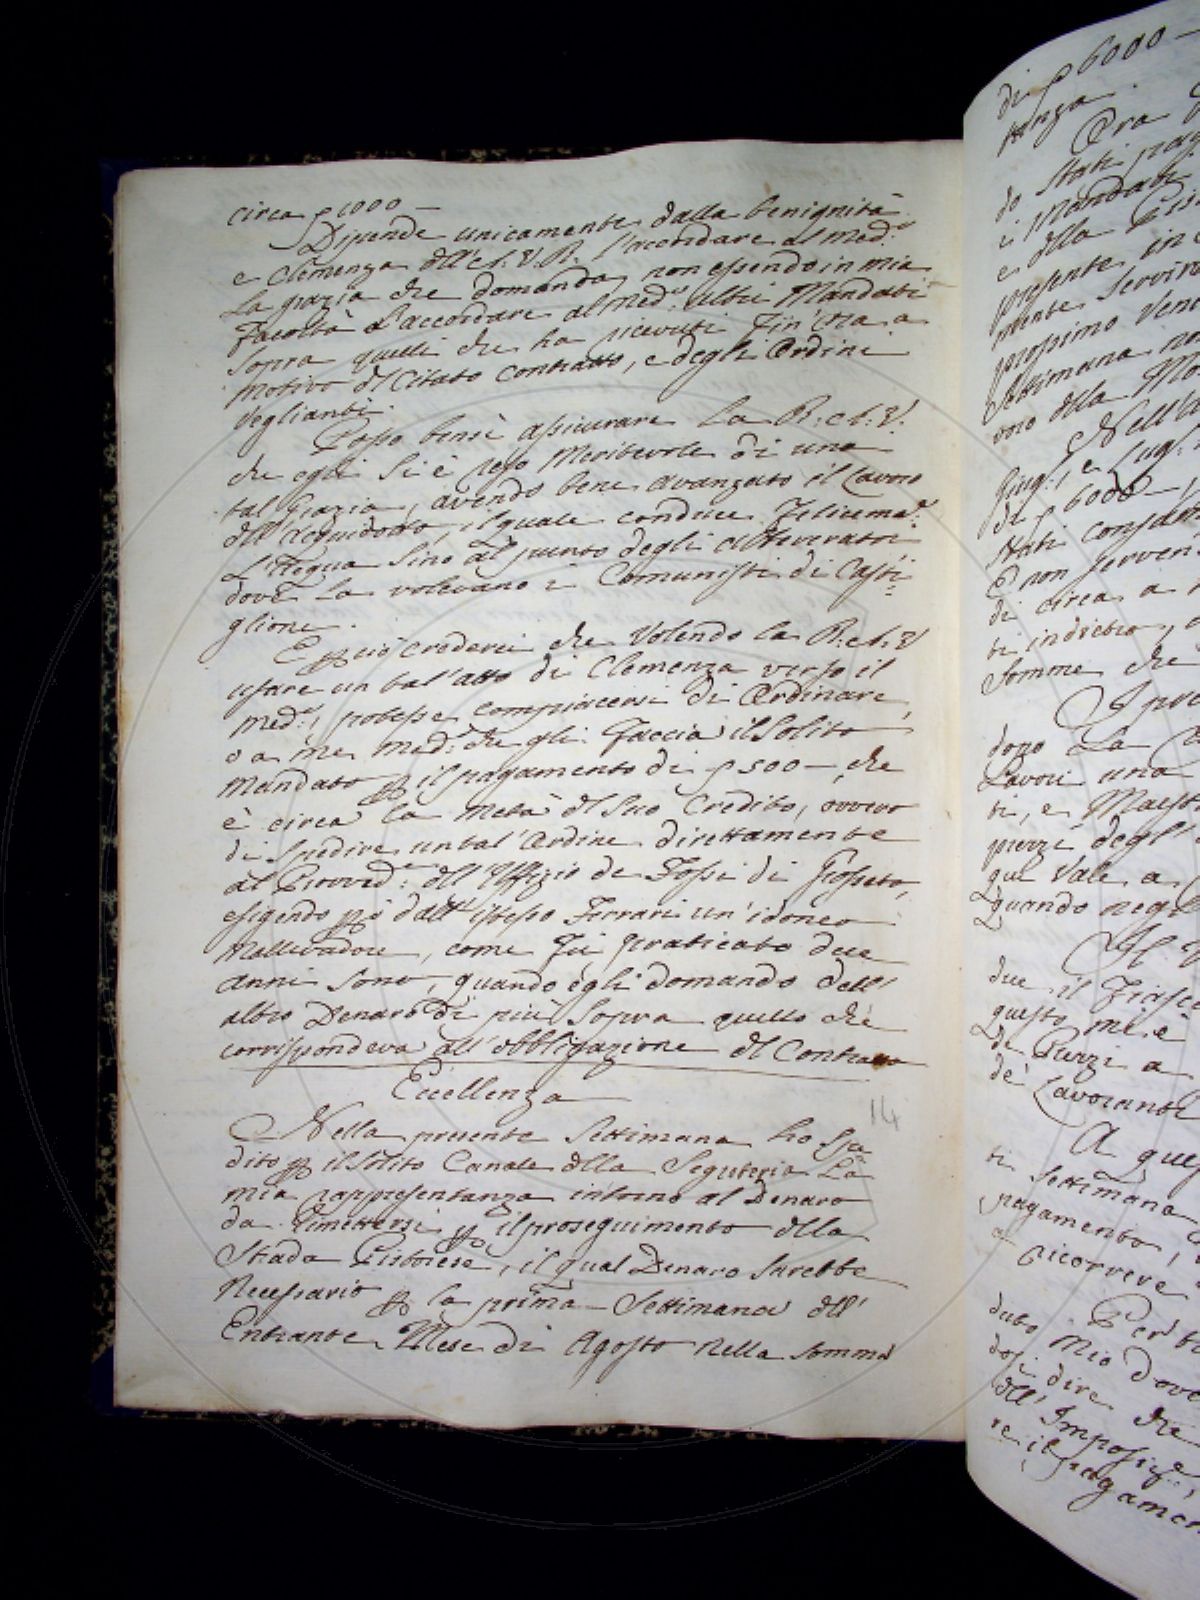 circa p 1000 —
Dipende unicamente dalla benignità
e Clemenza dell'A. V. R. l'accordare al Med.º
la grazia che domanda, non essendo in mia
facoltà l'accordare al Med.º altri Mandati
sopra quelli che ha ricevuti fin'ora a
motivo del Citato Contratto, e degli Ordini
Veglianti.
Posso bensì assicurare La R. A. V.
che egli si è reso Meritevole di una
tal Grazia, avendo bene avanzato il Lavoro
dell'Acquidotto, il quale conduce felicem.e
L'Acqua sino al punto degli Abbeveratoi
dove La volevano i Comunisti di Casti=
glione.
E p ciò crederei che Volendo la R. A. V.
usare un tal'atto di Clemenza verso il
Med.º, potesse compiacersi di Ordinare,
o a me med.º che gli faccia il Solito
Mandato p il pagamento di p 500 — che
è circa la metà del suo Credito, ovvero
di Spedire un tal'Ordine direttamente
al Provved.re dell'Uffizio de Fossi di Grosseto,
esigendo p ò dall'istesso Ferrari un'idoneo
Mallevadore, come fù praticato due
anni sono, quando egli domandò dell'
altro Denaro di più sopra quello che
corrispondeva all'obbligazione del Contratto
Eccellenza
14
Nella presente Settimana ho spe=
dito p il solito Canale della Segreteria La
mia rappresentanza intorno al Denaro
da rimettersi p il proseguimento della
Strada Pistoiese, il qual Denaro sarebbe
Necessario p la prima Settimana dell'
Entrante Mese di Agosto nella somma
di p 6000 —
tanza.
Ora
do Stati pag
i Mandati
e della
presente in
mente servir
prossimo Ven
Settimana non
voro della Mo
Nell'
Giug.º e Lug.
di p 6000 —,
Stati consum
E non serven
di circa a
ti indietro, o
somme che
I pre
dono La
Lavori una
ti, e Maest
prezzi degl'
que Vale a
quando negl
Il
due il Fiasc
questo mi è
de Prezzi a
de' Lavoranti
A ques
ti Settimana
pagamento,
a ricorrere
Per
duto Mio dove
dosi dire che
dell'Imposiz.e,
re il pagamen